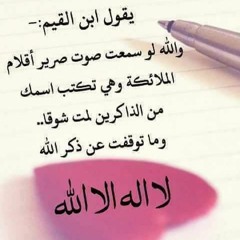 يقول ابن القيم:-
والله لو سمعت صوت صرير أقلام
الملائكة وهي تكتب اسمك
من الذاكرين لمت شوقا..
وما توقفت عن ذكر الله
لا اله الا الله